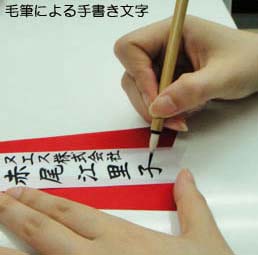 毛筆による手書き文字
ヌエス株式会社
赤尾江里子